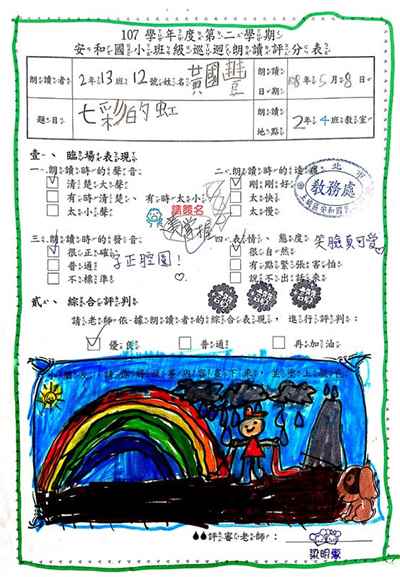 107學年度第二學期
安和國小班級巡迴朗讀評分表
朗讀者 2年13班12號姓名 黃國豐 朗讀日期 108年5月8日
題目 七彩的虹 朗讀地點 2年4班教室
壹、臨場表現
一、朗讀時的聲音 二、朗讀時的速度
清楚大聲 剛剛好
有時清楚、有時太小 太快
太小聲 太慢
請簽名
教務處
三、朗讀時的發音 四、表情、態度 笑臉真可愛
很正確 字正腔圓! 很自然
普通 有點緊張害怕
不標準 說不出話來
貳、綜合評判
請老師依據朗讀者的綜合表現,進行評判:
優良 普通 再加油
評審老師:
梁明霞